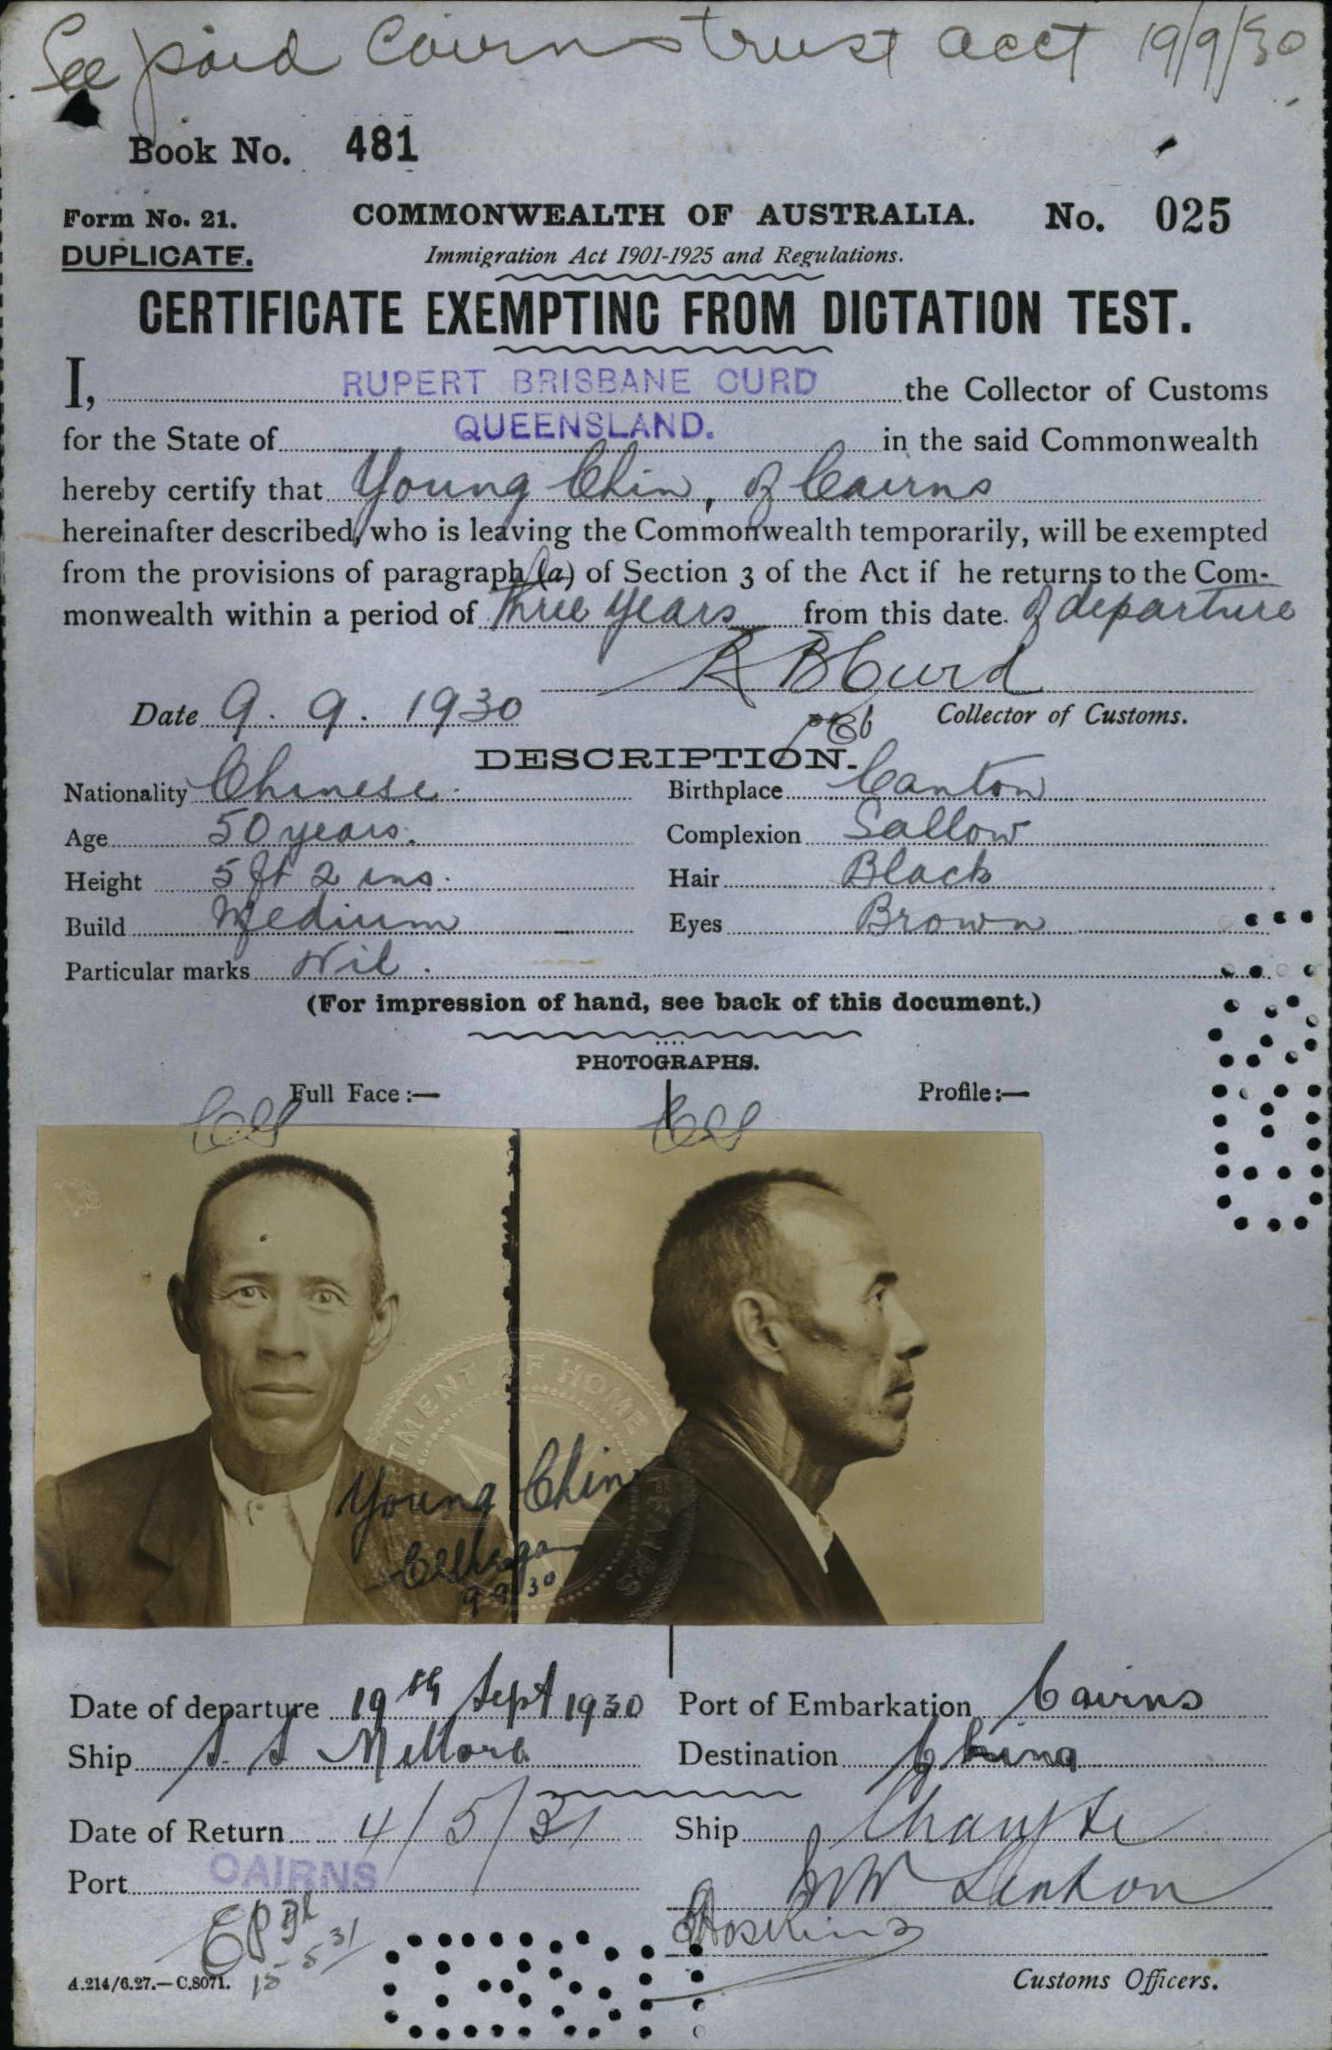 See paid Cairns trust acct 19/9/30
Book No. 481
Form No. 21. COMMONWEALTH OF AUSTRALIA. No. 025
DUPLICATE. Immigration Act 1901-1925 and Regulations.
CERTIFICATE EXEMPTING FROM DICTATION TEST.
I, RUPERT BRISBANE CURD the Collector of Customs
for the State of QUEENSLAND. in the said Commonwealth
hereby certify that Young Chin, of Cairns
hereinafter described, who is leaving the Commonwealth temporarily, will be exempted
from the provisions of paragraph (a) of Section 3 of the Act if he returns to the Com-
monwealth within a period of three years from this date of departure
R B Curd
Date 9. 9. 1930 Collector of Customs.
DESCRIPTION.
Nationality Chinese. Birthplace Canton
Age 50 years. Complexion Sallow
Height 5 ft 2 ins. Hair Black
Build Medium Eyes Brown
Particular marks Nil.
(For impression of hand, see back of this document.)
PHOTOGRAPHS.
Full Face:— Profile:—
Young Chin
9.9.30
Date of departure 19th Sept 1930 Port of Embarkation Cairns
Ship S. S Mellore Destination China
Date of Return 4/5/31 Ship Changte
Port CAIRNS
Hoskins
15 5 31
A.214/6.27.—C.8071. Customs Officers.